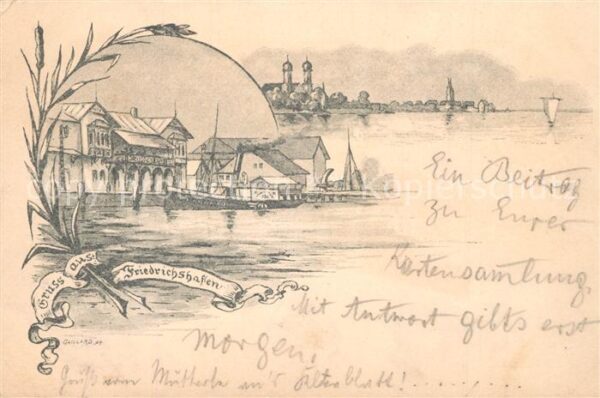 Gruss aus:
Friedrichshafen
Ein Beitrag
zu Eurer
Kartensammlung.
Mit Antwort gibts erst
morgen.
Gruß vom Mütterle an's